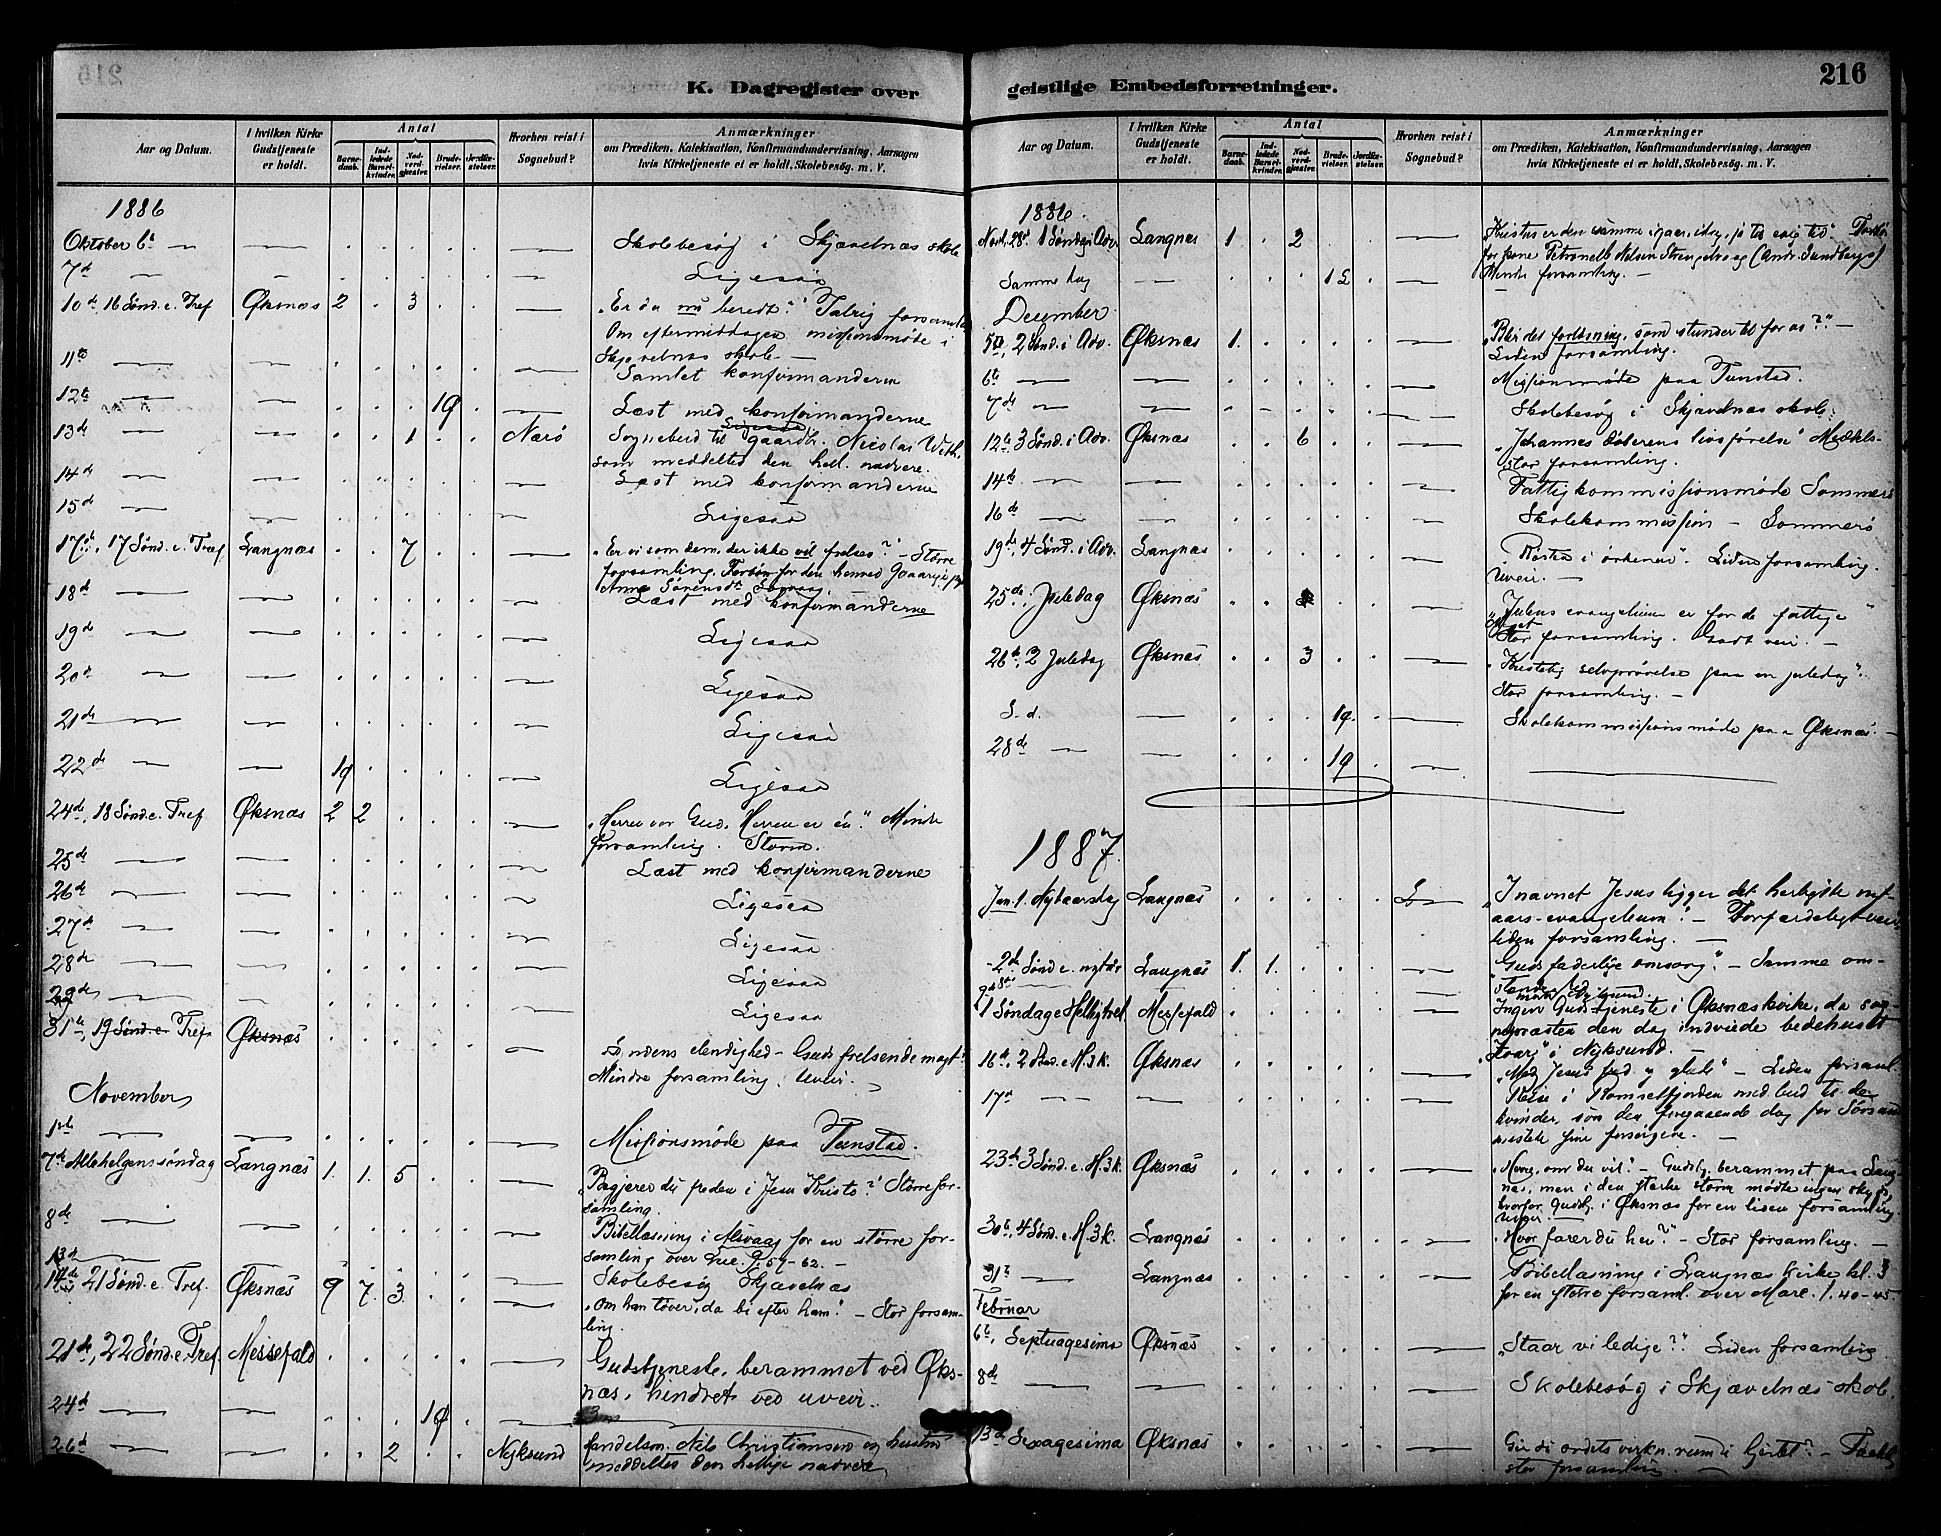 216
K. Dagregister over
geistlige Embedsforretninger.
Aar og Datum.
I hvilken Kirke Gudstjeneste er holdt.
Antal
Barnedaab.
Indledede Barselkvinder.
Nadverdgjester.
Brudevielser.
Jordfæstelser.
Hvorhen reist i Sognebud?
Anmærkninger
om Prædiken, Katekisation, Konfirmandundervisning, Aarsagen
hvis Kirketjeneste ei er holdt, Skolebesøg. m. V.
1886
Oktober 6te Skolebesøg i Skjævelnæs skole
7de Ligesaa
10de, 16 Sønd. e. Tref Øksnæs 2 . 3 . . „Er du nu beredt?" Talrig forsamling
Om eftermiddagen missionsmøde i
Skjævelnæs skole. —
11te Samlet konfirmanderne
12te 19 Læst med konfirmanderne
13de 1 Nærø Sognebud til gaardbr.
som meddeltes den hell. nadvere.
14de Læst med konfirmanderne
15de Ligesaa
17de, 17 Sønd. e. Tref Langnæs . . 7 . . „Er vi som dem, der ikke vil frelses?" – Større
forsamling. Forbøn for den
Anne Sørensdt.
18de Læst med konfirmanderne
19de Ligesaa
20de Ligesaa
21de Ligesaa
22de 19 Ligesaa
24de, 18 Sønd. e. Tref Øksnæs 2 2 . . . „Herren vor Gud, Herren er én." Mindre
forsamling. Storm.
25de Læst med konfirmanderne
26de Ligesaa
27de Ligesaa
28de Ligesaa
29de Ligesaa
31te, 19 Sønd. e. Tref Øksnæs . . . . . Syndens elendighed – Guds frelsende magt
Mindre forsamling. Uveir.
November
1ste Missionsmøde paa Tunstad.
7de Allehelgenssøndag Langnæs 1. 1. 5 . . „Begjerer du freden i Jesu Kristo?" Større for-
samling.
8de Bibellæsning i Alsvaag for en større for-
samling over Luc. 9. 57-62. –
13de Skolebesøg Skjævelnæs
14de, 21 Sønd. e. Tref. Øksnæs 9 7. 3. . . „Om han tøver, da bi efter ham." – Stor forsam-
ling.
21de, 22 Sønd. e. Tref. Messefald . . . . . Gudstjeneste, berammet ved Øks-
næs, hindret ved uveir.
24de 19
26de 2 Nyksund handelsm. Nils Christiansen og hustru
meddeltes den hellige nadvere
1886.
Novb. 28de 1 Søndag i Adv. Langnæs 1 . 2 Kristus er den samme igaar, idag, ja til evig tid".
for kone Petronelle Nilsen Strengelvaag
Mindre forsamling. –
Samme dag 12
December
5te, 2 Sønd. i Adv. Øksnæs 1. „Blir det forløsning, som stunder til for os?" –
Liden forsamling.
6te Missionsmøde paa Tunstad.
7de Skolebesøg i Skjævelnæs skole.
12te 3 Sønd. i Adv. Øksnæs . . 6 „Johannes døberens livsførelse" Middels-
stor forsamling.
14de Fattigkommissionsmøde Sommerø
16de Skolekommission – Sommerø
19de, 4 Sønd. i Adv. Langnæs Røsten i ørkenen". Liden forsamling.
Uveir. –
25de Juledag Øksnæs „Julens evangelium er for de fattige"
Meget
Stor forsamling. Godt veir. –
26de, 2 Juledag Øksnæs . . 3 „Kristelig selvprøvelse paa en juledag".
Stor forsamling. –
S. d. 19. Skolekommissionsmøde paa Øksnæs. –
28de 19
1887.
Jan. 1. Nytaarsdag Langnæs „I navnet Jesus ligger det herligste nyt-
aars-evangelium". – Forfærdeligt veir,
liden forsamling. –
2de Sønd e. nytaar Langnæs 1. 1. Guds faderlige omsorg". – Samme om-
stændighed.
1 Søndag e Helligtrek. Messefald Ingen Gudstjeneste i Øksnæs kirke, da sog-
nepræsten den dag indviede bedehuset
i Nyksund.
16de, 2 Sønd. e H.3k. Øksnæs „Med Jesus fred og glæde" – Liden forsaml.
17de Reise i Romsetfjorden med bud til de
kvinder, som den foregaaende dag
mistede sine forsørgere. –
23de 3 Sønd. e. H.3k. Øksnæs „Herre, om du vil". – Gudstj. berammet paa Lang-
næs, men i den sterke storm mødte ingen
hvorfor Gudstj. i Øksnæs for en liden forsamling
30te, 4 Sønd. e. H.3k. Langnæs „Hvor farer du hen?" – Stor forsamling. –
31te Langnæs Bibellæsning i Langnæs kirke kl. 3
for en større forsaml. over Marc. 1. 40–45.
Februar
6te, Septuagesima Øksnæs „Staar vi ledige?" Liden forsamling
8de Skolebesøg i Skjævelnæs skole.
13de Sexagesima Øksnæs Giv di ordets virkn. rum i hjertet? –
stor forsamling. –